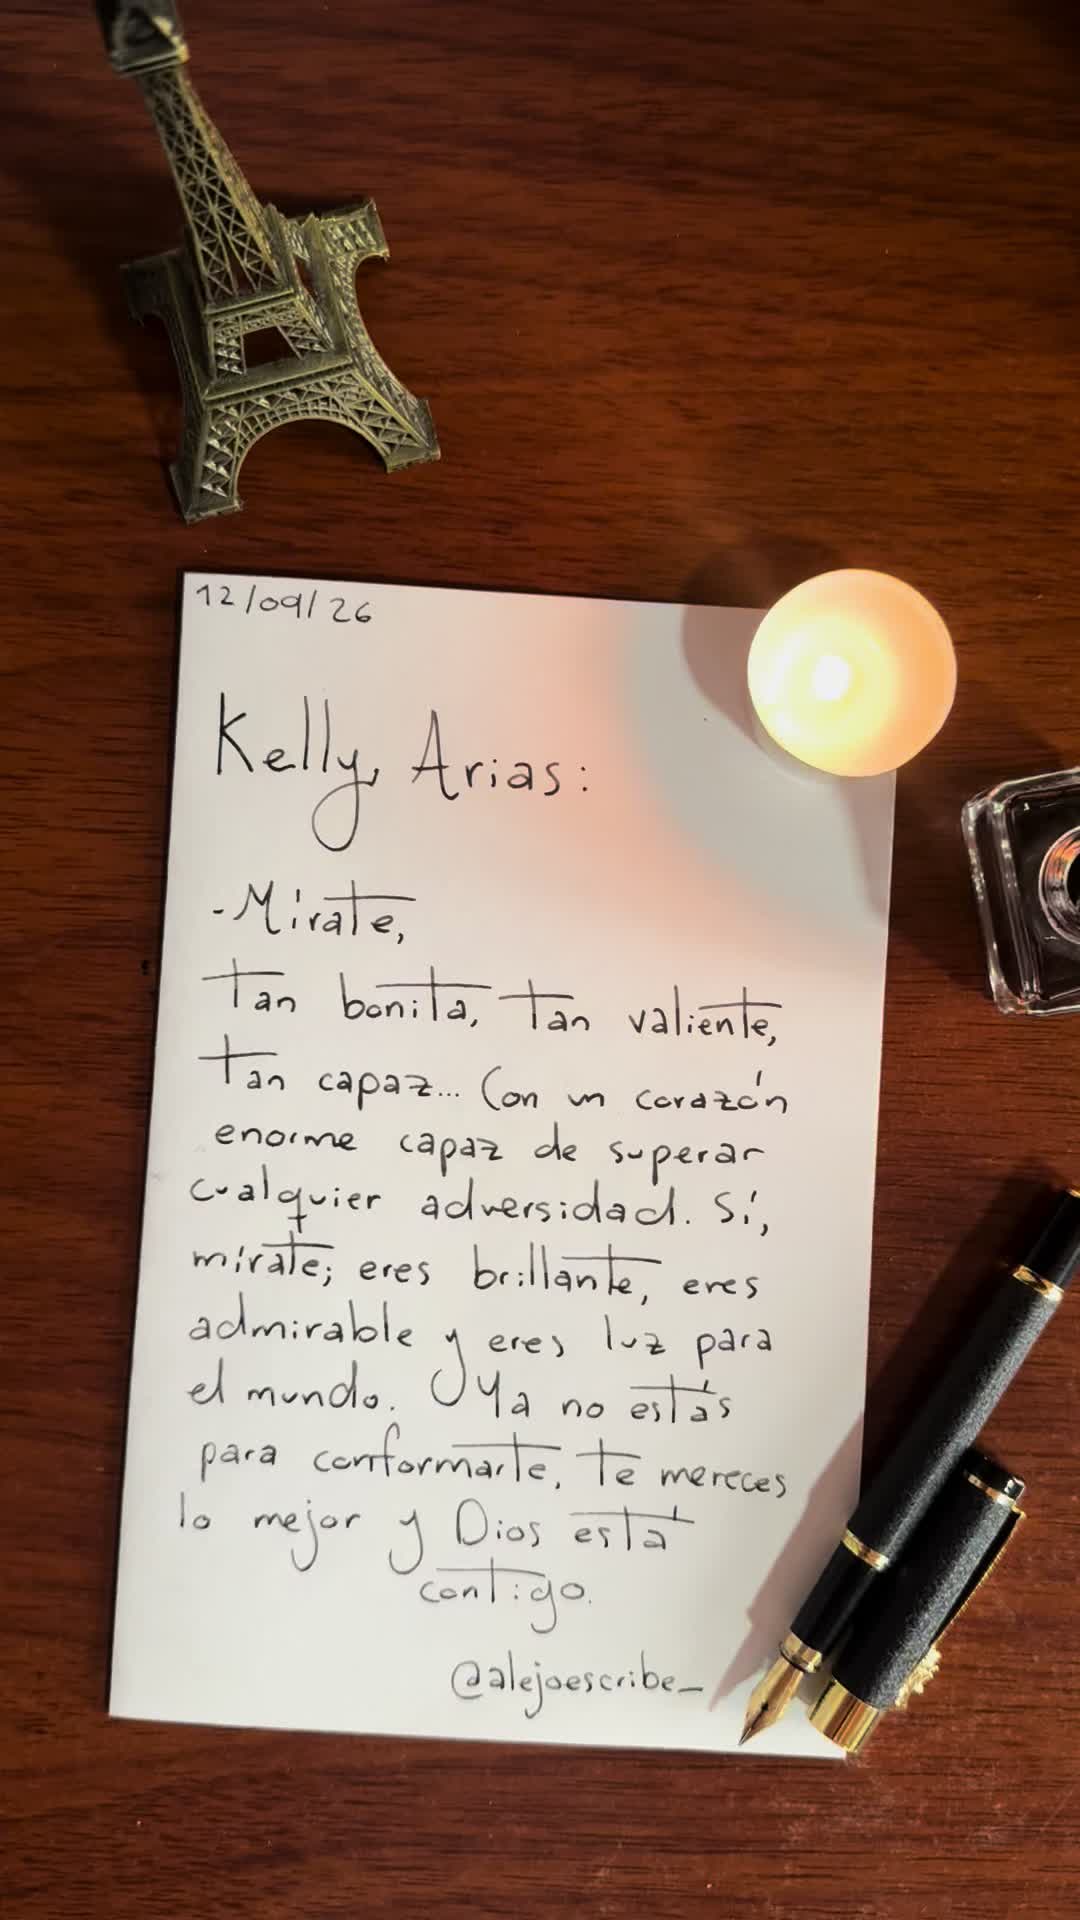 12/09/26
Kelly, Arias:
-Mírate,
Tan bonita, Tan valiente,
Tan capaz... Con un corazón
enorme capaz de superar
cualquier adversidad. Sí,
mírate; eres brillante, eres
admirable y eres luz para
el mundo. Ya no estás
para conformarte, te mereces
lo mejor y Dios está
contigo.
@alejoescribe_